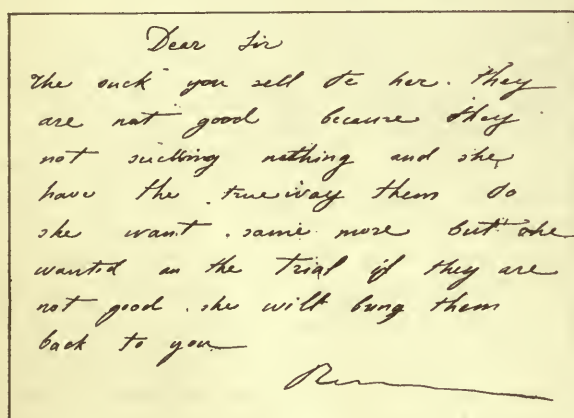 Dear Sir
the suck you sell to her. they
are not good because they
not sucking nothing and she
have the trueway them do
she want. some more but she
wanted on the trial if they are
not good. she will bung them
back to you